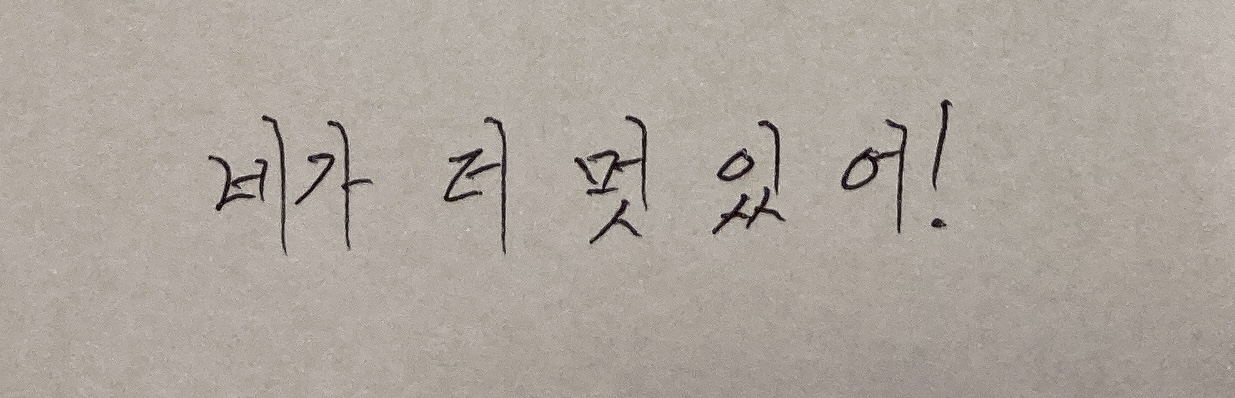 네가 더 멋있어!